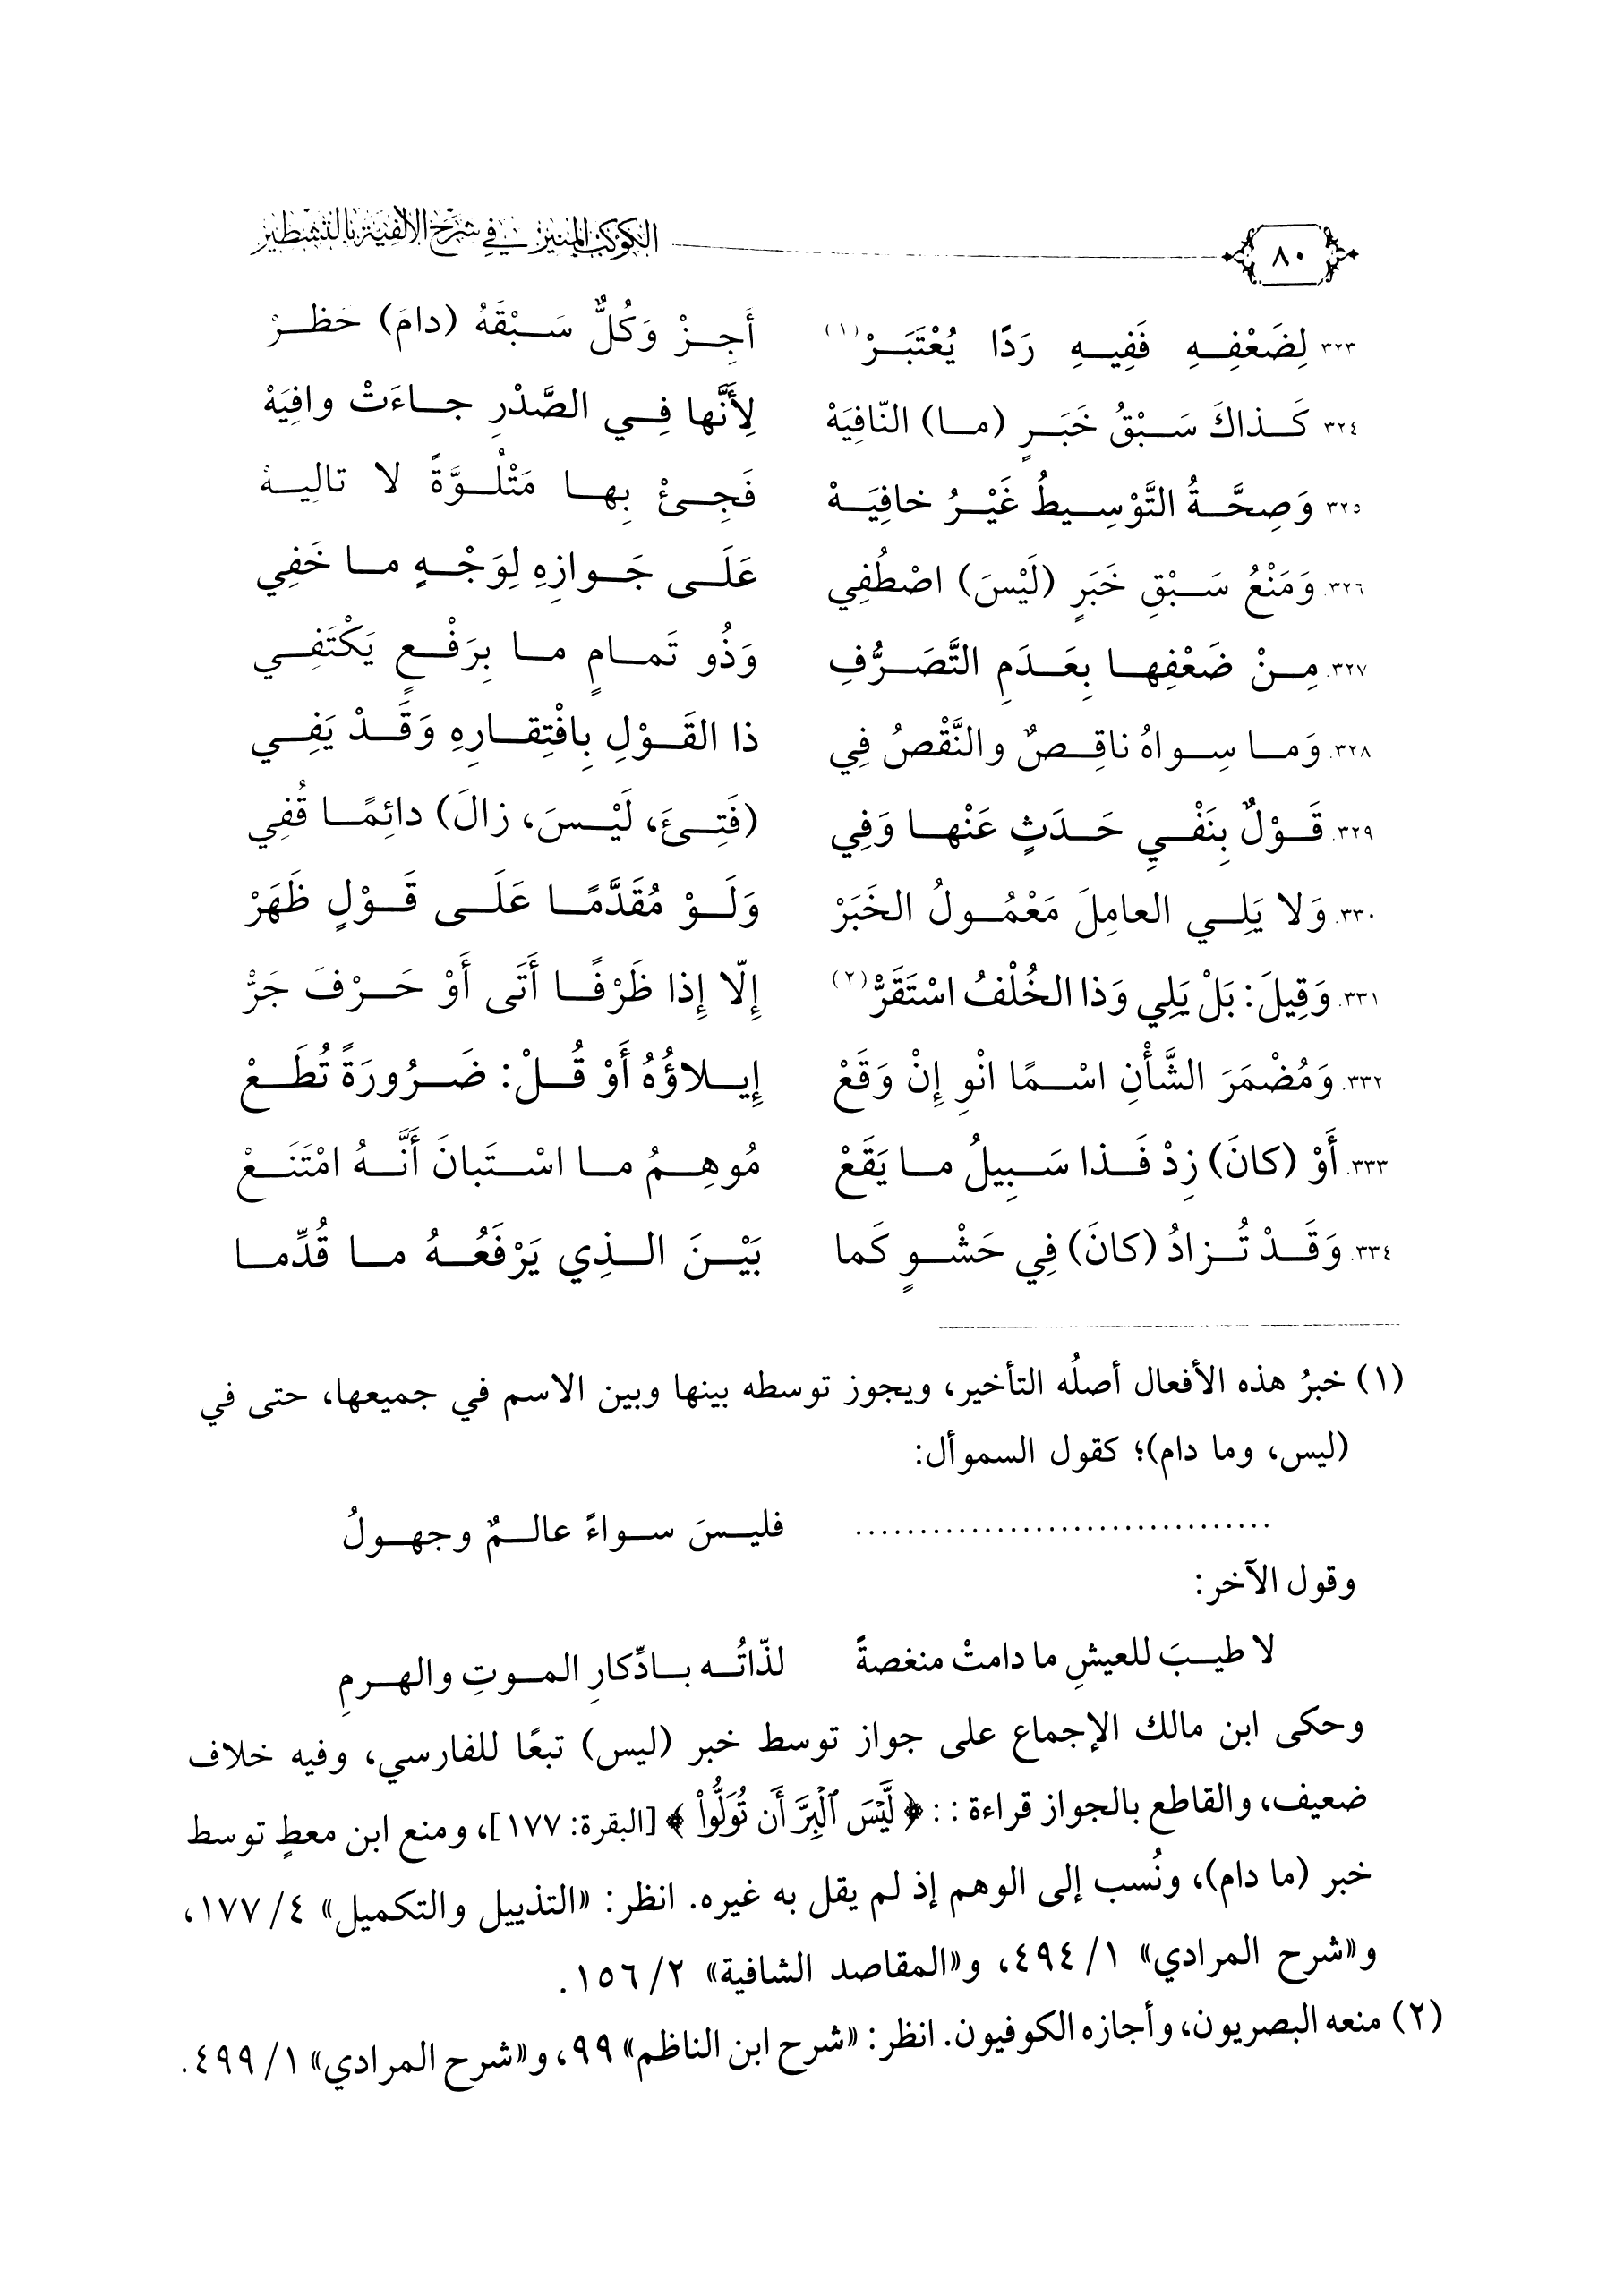 ٨٠ الكوكب المنير في شرح الألفية بالتشطير
٣٢٣ لِضَعْفِهِ فَفِيهِ رَدًا يُعْتَبَرْ(١) أَجِزْ وَكُلٌّ سَبْقَهُ (دامَ) حَظرْ
٣٢٤ كَذاكَ سَبْقُ خَبَرٍ (ما) النّافِيَهْ لِأَنَّها فِي الصَّدْرِ جاءَتْ وافِيَهْ
٣٢٥ وَصِحَّةُ التَّوْسِيطُ غَيْرُ خافِيَهْ فَجِئْ بِها مَتْلُوَّةً لا تالِيهْ
٣٢٦. وَمَنْعُ سَبْقِ خَبَرٍ (لَيْسَ) اصْطُفِي عَلَى جَوازِهِ لِوَجْهٍ ما خَفِي
٣٢٧. مِنْ ضَعْفِها بِعَدَمِ التَّصَرُّفِ وَذُو تَمامٍ ما بِرَفْعٍ يَكْتَفِي
٣٢٨. وَما سِواهُ ناقِصٌ والنَّقْصُ فِي ذا القَوْلِ بِافْتِقارِهِ وَقَدْ يَفِي
٣٢٩. قَوْلٌ بِنَفْيِ حَدَثٍ عَنْها وَفِي (فَتِئَ، لَيْسَ، زالَ) دائِمًا قُفِي
٣٣٠. وَلا يَلِي العامِلَ مَعْمُولُ الخَبَرْ وَلَوْ مُقَدَّمًا عَلَى قَوْلٍ ظَهَرْ
٣٣١. وَقِيلَ: بَلْ يَلِي وَذا الخُلْفُ اسْتَقَرّْ(٢) إِلّا إِذا ظَرْفًا أَتَى أَوْ حَرْفَ جَرّْ
٣٣٢. وَمُضْمَرَ الشَّأْنِ اسْمًا انْوِ إِنْ وَقَعْ إِيلاؤُهُ أَوْ قُلْ: ضَرُورَةً تُطَعْ
٣٣٣. أَوْ (كانَ) زِدْ فَذا سَبِيلُ ما يَقَعْ مُوهِمُ ما اسْتَبانَ أَنَّهُ امْتَنَعْ
٣٣٤. وَقَدْ تُزادُ (كانَ) فِي حَشْوٍ كَما بَيْنَ الذِي يَرْفَعُهُ ما قُدِّما
(١) خبرُ هذه الأفعال أصلُه التأخير، ويجوز توسطه بينها وبين الاسم في جميعها، حتى في
(ليس، وما دام)؛ كقول السموأل:
................................ فليسَ سواءً عالمٌ وجهولُ
وقول الآخر:
لا طيبَ للعيشِ ما دامتْ منغصةً لذّاتُه بادِّكارِ الموتِ والهرمِ
وحكى ابن مالك الإجماع على جواز توسط خبر (ليس) تبعًا للفارسي، وفيه خلاف
ضعيف، والقاطع بالجواز قراءة : : ﴿لَّيْسَ ٱلْبِرَّ أَن تُوَلُّوا۟﴾ [البقرة: ١٧٧]، ومنع ابن معطٍ توسط
خبر (ما دام)، ونُسب إلى الوهم إذ لم يقل به غيره. انظر: «التذييل والتكميل» ٤/ ١٧٧،
و«شرح المرادي» ١/ ٤٩٤، و«المقاصد الشافية» ٢/ ١٥٦.
(٢) منعه البصريون، وأجازه الكوفيون. انظر: «شرح ابن الناظم» ٩٩، و«شرح المرادي» ١/ ٤٩٩.